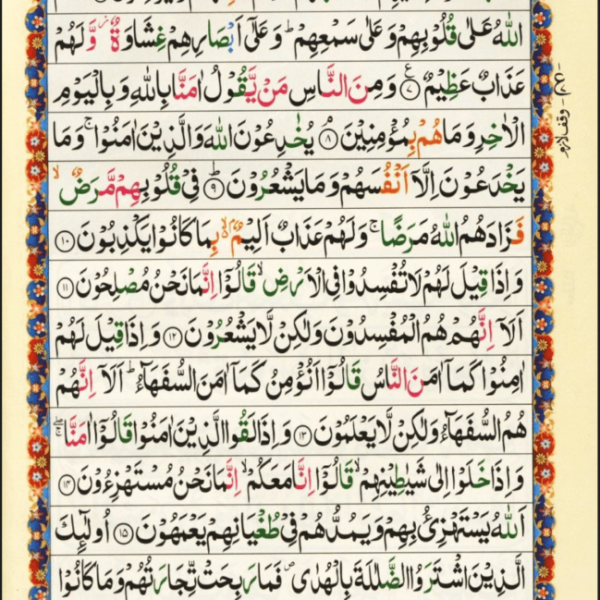 اللّٰهُ عَلٰى قُلُوْبِهِمْ وَعَلٰى سَمْعِهِمْ ؕ وَعَلٰٓى اَبْصَارِهِمْ غِشَاوَةٌ ۫ وَّلَهُمْ
عَذَابٌ عَظِيْمٌ ﴿۷﴾ ع وَمِنَ النَّاسِ مَنْ يَّقُوْلُ اٰمَنَّا بِاللّٰهِ وَبِالْيَوْمِ
الْاٰخِرِ وَمَا هُمْ بِمُؤْمِنِيْنَ ﴿۸﴾ ۘ يُخٰدِعُوْنَ اللّٰهَ وَالَّذِيْنَ اٰمَنُوْا ۚ وَمَا
يَخْدَعُوْنَ اِلَّاۤ اَنْفُسَهُمْ وَمَا يَشْعُرُوْنَ ﴿۹﴾ ؕ فِىْ قُلُوْبِهِمْ مَّرَضٌ ۙ
فَزَادَهُمُ اللّٰهُ مَرَضًا ۚ وَلَهُمْ عَذَابٌ اَلِيْمٌۢ ۙ۬ بِمَا كَانُوْا يَكْذِبُوْنَ ﴿۱۰﴾
وَاِذَا قِيْلَ لَهُمْ لَا تُفْسِدُوْا فِى الْاَرْضِ ۙ قَالُوْۤا اِنَّمَا نَحْنُ مُصْلِحُوْنَ ﴿۱۱﴾
اَلَاۤ اِنَّهُمْ هُمُ الْمُفْسِدُوْنَ وَلٰكِنْ لَّا يَشْعُرُوْنَ ﴿۱۲﴾ وَاِذَا قِيْلَ لَهُمْ
اٰمِنُوْا كَمَاۤ اٰمَنَ النَّاسُ قَالُوْۤا اَنُؤْمِنُ كَمَاۤ اٰمَنَ السُّفَهَآءُ ؕ اَلَاۤ اِنَّهُمْ
هُمُ السُّفَهَآءُ وَلٰكِنْ لَّا يَعْلَمُوْنَ ﴿۱۳﴾ وَاِذَا لَقُوا الَّذِيْنَ اٰمَنُوْا قَالُوْۤا اٰمَنَّا ۖۚ
وَاِذَا خَلَوْا اِلٰى شَيٰطِيْنِهِمْ ۙ قَالُوْۤا اِنَّا مَعَكُمْ ۙ اِنَّمَا نَحْنُ مُسْتَهْزِءُوْنَ ﴿۱۴﴾
اَللّٰهُ يَسْتَهْزِئُ بِهِمْ وَيَمُدُّهُمْ فِىْ طُغْيَانِهِمْ يَعْمَهُوْنَ ﴿۱۵﴾ اُولٰٓئِكَ
الَّذِيْنَ اشْتَرَوُا الضَّلٰلَةَ بِالْهُدٰى ۪ فَمَا رَبِحَتْ تِّجَارَتُهُمْ وَمَا كَانُوْا
وقف لازم